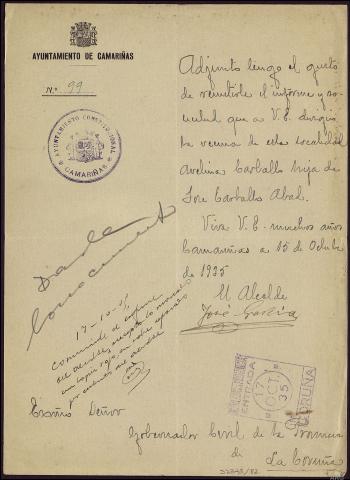 AYUNTAMIENTO DE CAMARIÑAS
N.º 99
AYUNTAMIENTO CONSTITUCIONAL
CAMARIÑAS
Adjunto tengo el gusto
de remitirle el informe y so-
licitud que a V.E. dirigió
la vecina de esta localidad
Avelina Carballo hija de
Jose Carballo Abal.
Viva V.E. muchos años
Camariñas a 15 de Octubre
de 1935
El Alcalde
José García
17-10-35
Comunicado el informe
del alcalde,
ENTRADA
17
OCT.
35
CORUÑA
Excmo Señor
Gobernador Civil de la Provincia
de
La Coruña